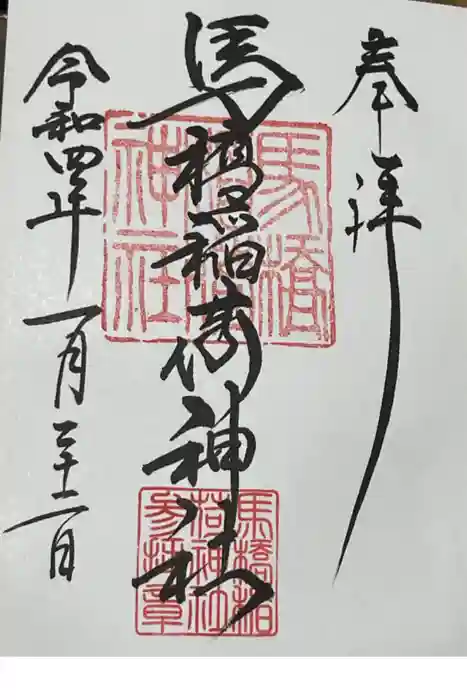 奉拝
馬橋稲荷神社
令和四年一月二十二日
馬橋
稲荷
神社
馬橋稲
荷神社
参拝章